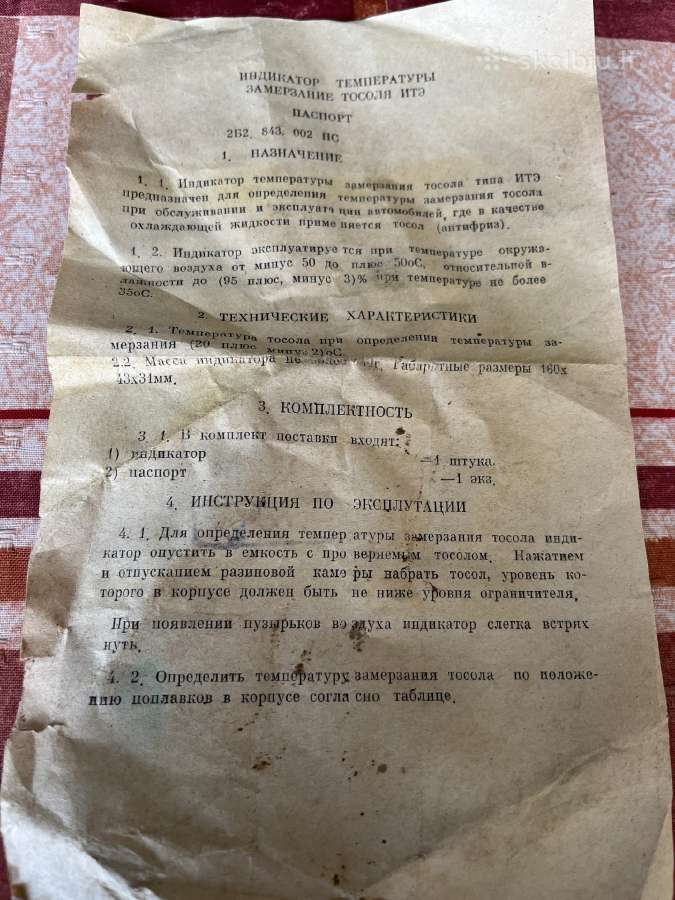 skelbiu.lt
ИНДИКАТОР ТЕМПЕРАТУРЫ
ЗАМЕРЗАНИЕ ТОСОЛЯ ИТЭ
ПАСПОРТ
2Б2. 843. 002 ПС
1. НАЗНАЧЕНИЕ
1. 1. Индикатор температуры замерзания тосола типа ИТЭ
предназначен для определения температуры замерзания тосола
при обслуживании и эксплуатации автомобилей, где в качестве
охлаждающей жидкости применяется тосол (антифриз).
1. 2. Индикатор эксплуатируется при температуре окружа-
ющего воздуха от минус 50 до плюс 50оС, относительной в-
лажности до (95 плюс, минус 3)% при температуре не более
35оС.
2. ТЕХНИЧЕСКИЕ ХАРАКТЕРИСТИКИ
2. 1. Температура тосола при определении температуры за-
мерзания (20 плюс минус 2)оС.
2.2. Масса индикатора не Габаритные размеры 160х
43х31мм.
3. КОМПЛЕКТНОСТЬ
3 1. В комплект поставки входят:
1) индикатор —1 штука.
2) паспорт —1 экз.
4. ИНСТРУКЦИЯ ПО ЭКСПЛУТАЦИИ
4. 1. Для определения температуры замерзания тосола инди-
катор опустить в емкость с проверяемым тосолом. Нажатием
и отпусканием разиновой камеры набрать тосол, уровень ко-
торого в корпусе должен быть не ниже уровня ограничителя.
При появлении пузырьков воздуха индикатор слегка встрях
нуть.
4. 2. Определить температуру замерзания тосола по положе-
нию поплавков в корпусе согласно таблице.